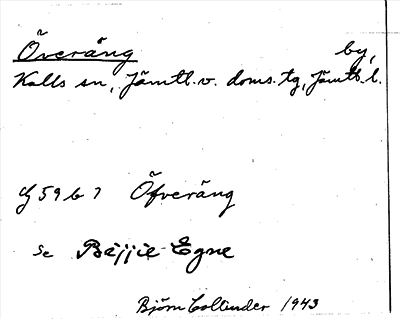 Överäng by,
Kalls sn, Jämtl. v. doms. tg, Jämtl. l.
59 b 7 Öfveräng
Se Bäjjie-Egne
Björn Collinder 1943